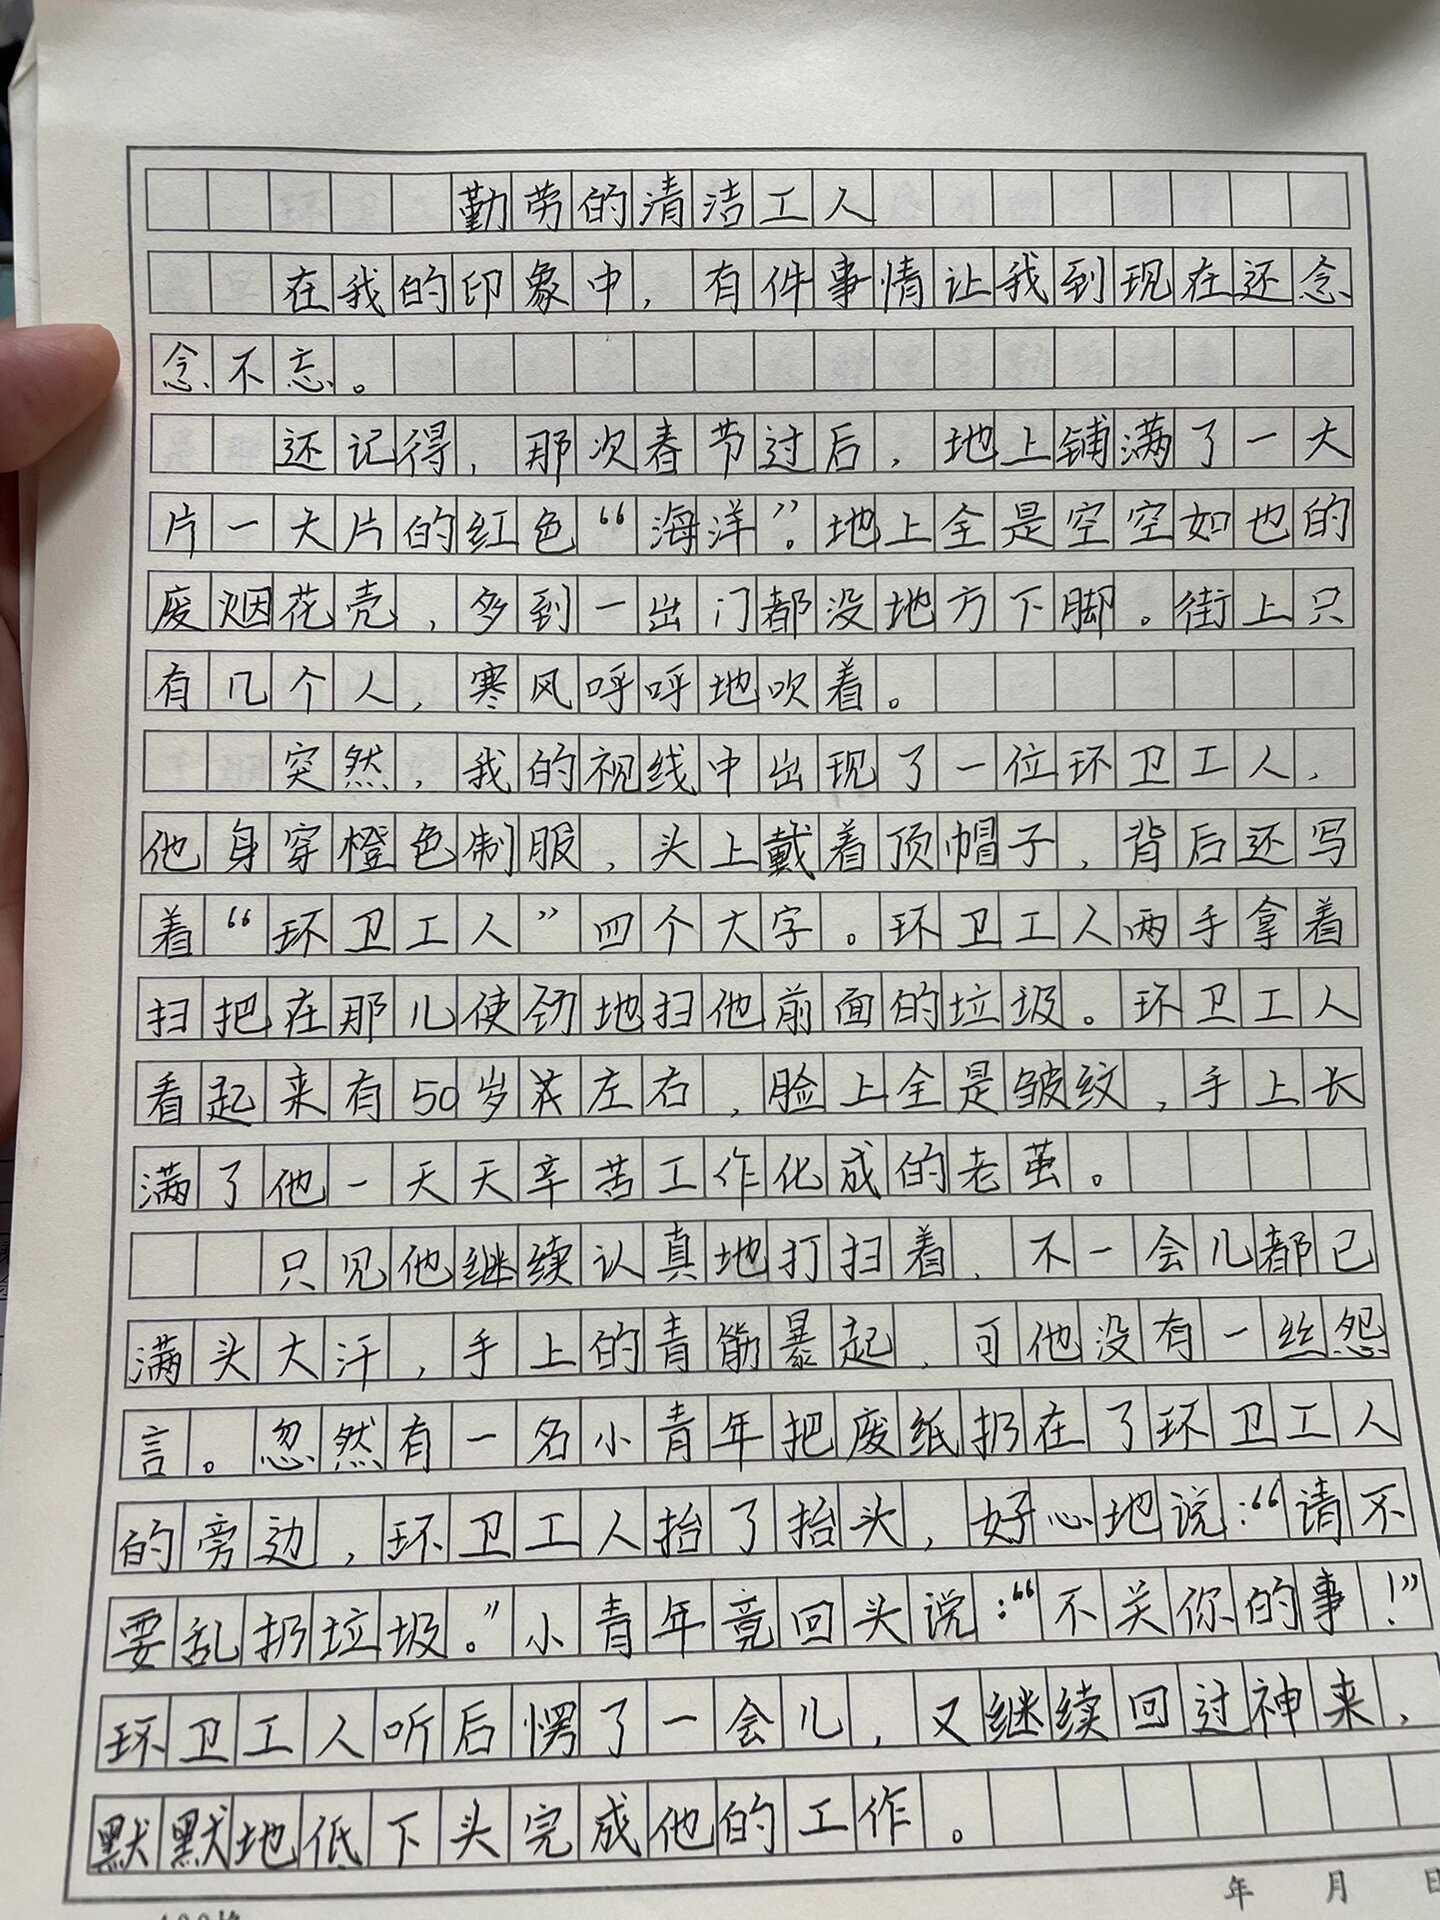 勤劳的清洁工人
在我的印象中，有件事情让我到现在还念
念不忘。
还记得，那次春节过后，地上铺满了一大
片一大片的红色“海洋”。地上全是空空如也的
废烟花壳，多到一出门都没地方下脚。街上只
有几个人，寒风呼呼地吹着。
突然，我的视线中出现了一位环卫工人，
他身穿橙色制服，头上戴着顶帽子，背后还写
着“环卫工人”四个大字。环卫工人两手拿着
扫把在那儿使劲地扫他前面的垃圾。环卫工人
看起来有50岁左右，脸上全是皱纹，手上长
满了他一天天辛苦工作化成的老茧。
只见他继续认真地打扫着，不一会儿都已
满头大汗，手上的青筋暴起，可他没有一丝怨
言。忽然有一名小青年把废纸扔在了环卫工人
的旁边，环卫工人抬了抬头，好心地说：“请不
要乱扔垃圾。”小青年竟回头说：“不关你的事！”
环卫工人听后愣了一会儿，又继续回过神来，
默默地低下头完成他的工作。
年 月 日